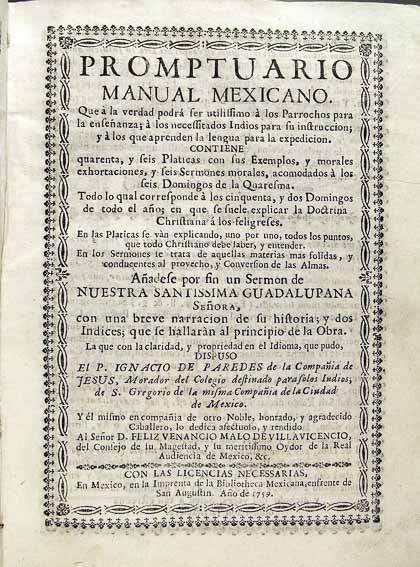 PROMPTUARIO
MANUAL MEXICANO.
Que à la verdad podrá ser utilissimo à los Parrochos para
la enseñanza; à los necessitados Indios para su instruccion;
y à los que aprenden la lengua para la expedicion.
CONTIENE
quarenta, y seis Platicas con sus Exemplos, y morales
exhortaciones, y seis Sermones morales, acomodados à los
seis Domingos de la Quaresma.
Todo lo qual corresponde à los cinquenta, y dos Domingos
de todo el año; en que se suele explicar la Doctrina
Christiana à los feligreses.
En las Platicas se vàn explicando, uno por uno, todos los puntos,
que todo Christiano debe saber, y entender.
En los Sermones se trata de aquellas materias mas solidas, y
conducentes al provecho, y Conversion de las Almas.
Añadese por fin un Sermon de
NUESTRA SANTISSIMA GUADALUPANA
SEÑORA,
con una breve narracion de su historia; y dos
Indices; que se hallaràn al principio de la Obra.
La que con la claridad, y propriedad en el Idioma, que pudo,
DISPUSO
El P. IGNACIO DE PAREDES de la Compañia de
JESUS, Morador del Colegio destinado para solos Indios,
de S. Gregorio de la misma Compañia de la Ciudad
de Mexico.
Y èl mismo en compañia de otro Noble, honrado, y agradecido
Caballero, lo dedica afectuoso, y rendido
Al Señor D. FELIZ VENANCIO MALO DE VILLAVICENCIO,
del Consejo de su Magestad, y su meritissimo Oydor de la Real
Audiencia de Mexico, &c.
CON LAS LICENCIAS NECESSARIAS,
En Mexico, en la Imprenta de la Bibliotheca Mexicana, enfrente de
San Augustin. Año de 1759.